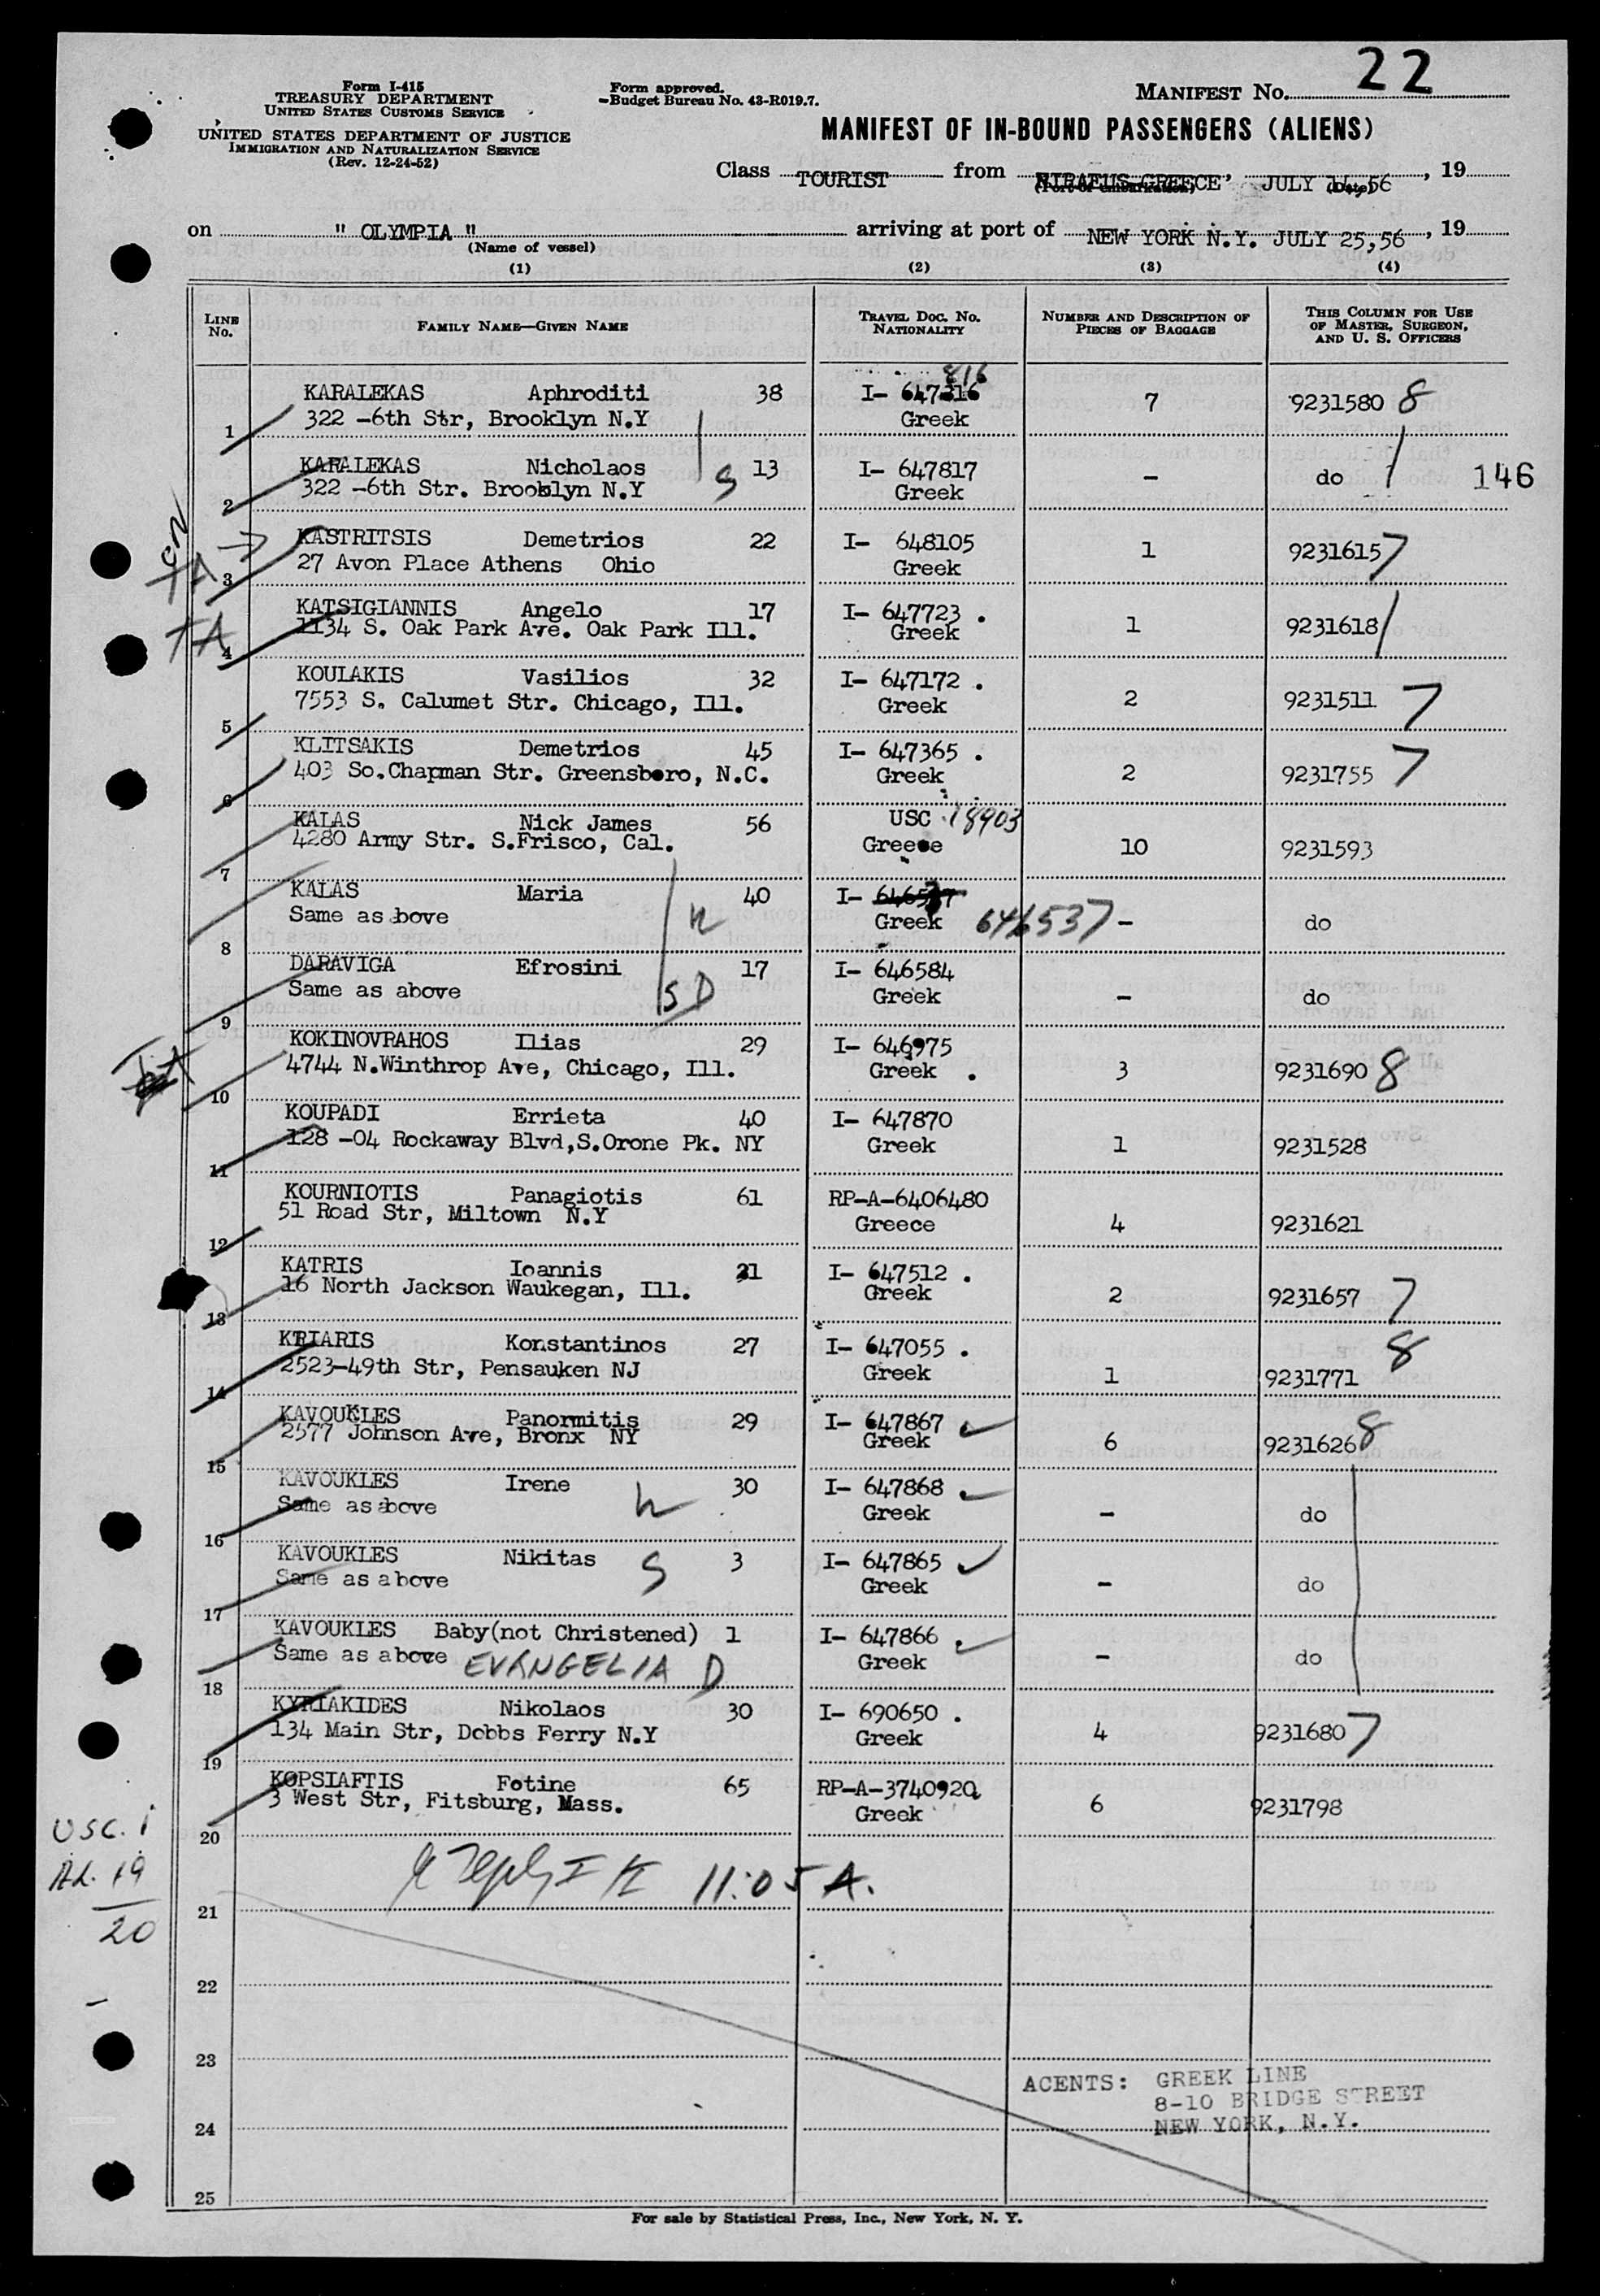 22
Form I-415
TREASURY DEPARTMENT
UNITED STATES CUSTOMS SERVICE
UNITED STATES DEPARTMENT OF JUSTICE
IMMIGRATION AND NATURALIZATION SERVICE
(Rev. 12-24-52)
Form approved.
Budget Bureau No. 43-R019.7.
MANIFEST No.
MANIFEST OF IN-BOUND PASSENGERS (ALIENS)
Class TOURIST from PIRAEUS GREECE, JULY 56, 19
(Port of embarkation) (Date)
on " OLYMPIA " arriving at port of NEW YORK N.Y. JULY 25,56, 19
(Name of vessel)
(1) (2) (3) (4)
LINE No. FAMILY NAME—GIVEN NAME TRAVEL DOC. No. NATIONALITY NUMBER AND DESCRIPTION OF PIECES OF BAGGAGE THIS COLUMN FOR USE OF MASTER, SURGEON, AND U. S. OFFICERS
816
KARALEKAS Aphroditi 38 I- 647316 7 9231580 8
1 322 -6th Str, Brooklyn N.Y Greek
KARALEKAS Nicholaos 13 I- 647817 - do
2 322 -6th Str. Brooklyn N.Y S Greek 146
KASTRITSIS Demetrios 22 I- 648105 1 9231615 7
TA 3 27 Avon Place Athens Ohio Greek
KATSIGIANNIS Angelo 17 I- 647723 . 1 9231618
TA 4 1134 S. Oak Park Ave. Oak Park Ill. Greek
KOULAKIS Vasilios 32 I- 647172 . 2 9231511 7
5 7553 S. Calumet Str. Chicago, Ill. Greek
KLITSAKIS Demetrios 45 I- 647365 . 2 9231755 7
6 403 So.Chapman Str. Greensboro, N.C. Greek
KALAS Nick James 56 USC 18903 10 9231593
7 4280 Army Str. S.Frisco, Cal. Greece
KALAS Maria 40 I- 646537 - do
8 Same as above Greek 646537
DARAVIGA Efrosini 17 I- 646584 - do
9 Same as above SD Greek
KOKINOVRAHOS Ilias 29 I- 646975 3 9231690 8
10 4744 N.Winthrop Ave, Chicago, Ill. Greek .
KOUPADI Errieta 40 I- 647870 1 9231528
11 128 -04 Rockaway Blvd,S.Orone Pk. NY Greek
KOURNIOTIS Panagiotis 61 RP-A-6406480 4 9231621
12 51 Road Str, Miltown N.Y Greece
KATRIS Ioannis 21 I- 647512 . 2 9231657 7
13 16 North Jackson Waukegan, Ill. Greek
KRIARIS Konstantinos 27 I- 647055 . 1 9231771 8
14 2523-49th Str, Pensauken NJ Greek
KAVOUKLES Panormitis 29 I- 647867 6 9231626 8
15 2577 Johnson Ave, Bronx NY Greek
KAVOUKLES Irene 30 I- 647868 - do
16 Same as above Greek
KAVOUKLES Nikitas S 3 I- 647865 - do
17 Same as above Greek
KAVOUKLES Baby(not Christened) 1 I- 647866 . - do
18 Same as above EVANGELIA D Greek
KYRIAKIDES Nikolaos 30 I- 690650 . 4 9231680 7
19 134 Main Str, Dobbs Ferry N.Y Greek
KOPSIAFTIS Fotine 65 RP-A-3740920 6 9231798
20 3 West Str, Fitsburg, Mass. Greek
USC. 1
AL. 19
20
11:05 A.
21
22
23
24
25
ACENTS: GREEK LINE
8-10 BRIDGE STREET
NEW YORK, N.Y.
For sale by Statistical Press, Inc., New York, N. Y.